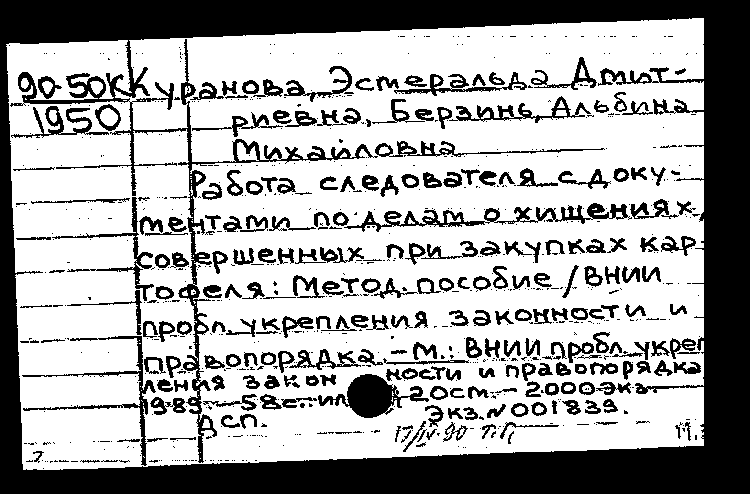 90-50К Куранова, Эстеральда Дмит-
1950 риевна, Берзинь, Альбина
Михайловна
Работа следователя с доку-
ментами по делам о хищениях,
совершенных при закупках кар-
тофеля: Метод. пособие / ВНИИ
пробл. укрепления законности и
правопорядка. - М.: ВНИИ пробл. укреп
ления закон ности и правопорядка
1989. - 58с.: ил 20см. - 2000экз.
ДСП. Экз. N 001839.
17/IV-90